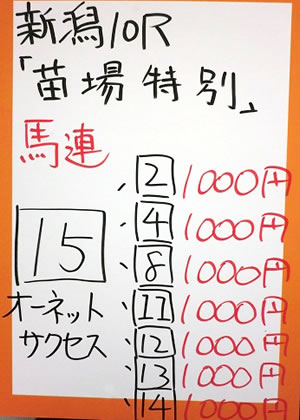 新潟10R
「苗場特別」
馬連
15
オーネット
サクセス
2 1000円
4 1000円
8 1000円
11 1000円
12 1000円
13 1000円
14 1000円